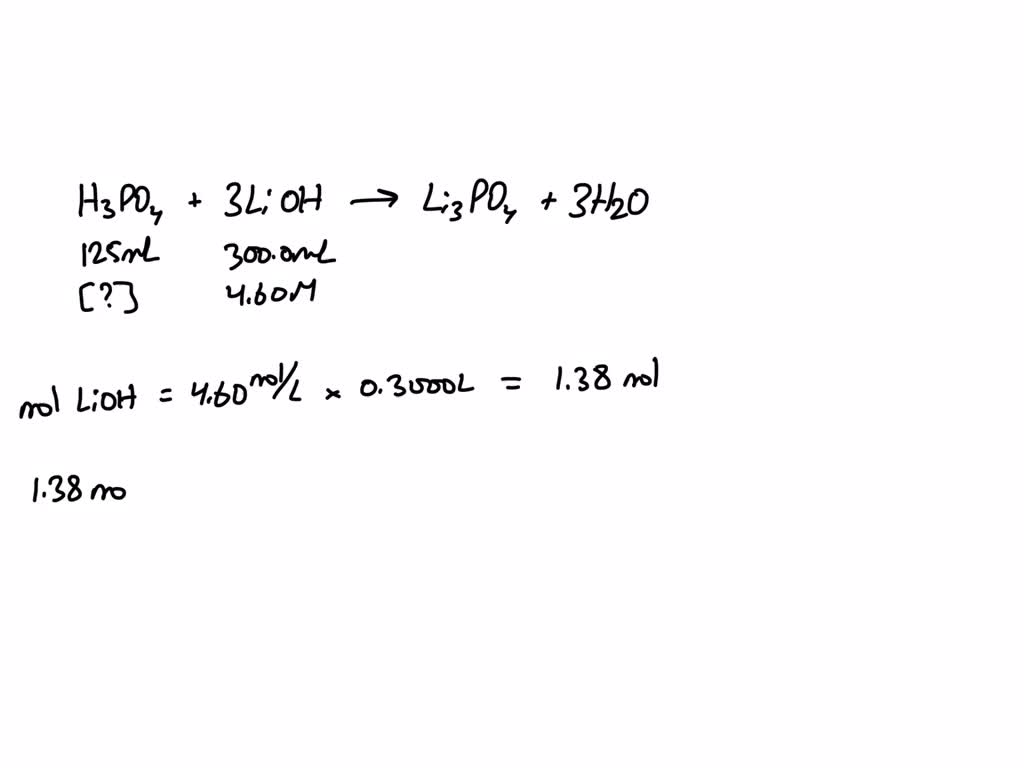 H₃PO₄ + 3LiOH → Li₃PO₄ + 3H₂O
125mL 300.0mL
[?] 4.60M
mol LiOH = 4.60 mol/L × 0.3000L = 1.38 mol
1.38 mo